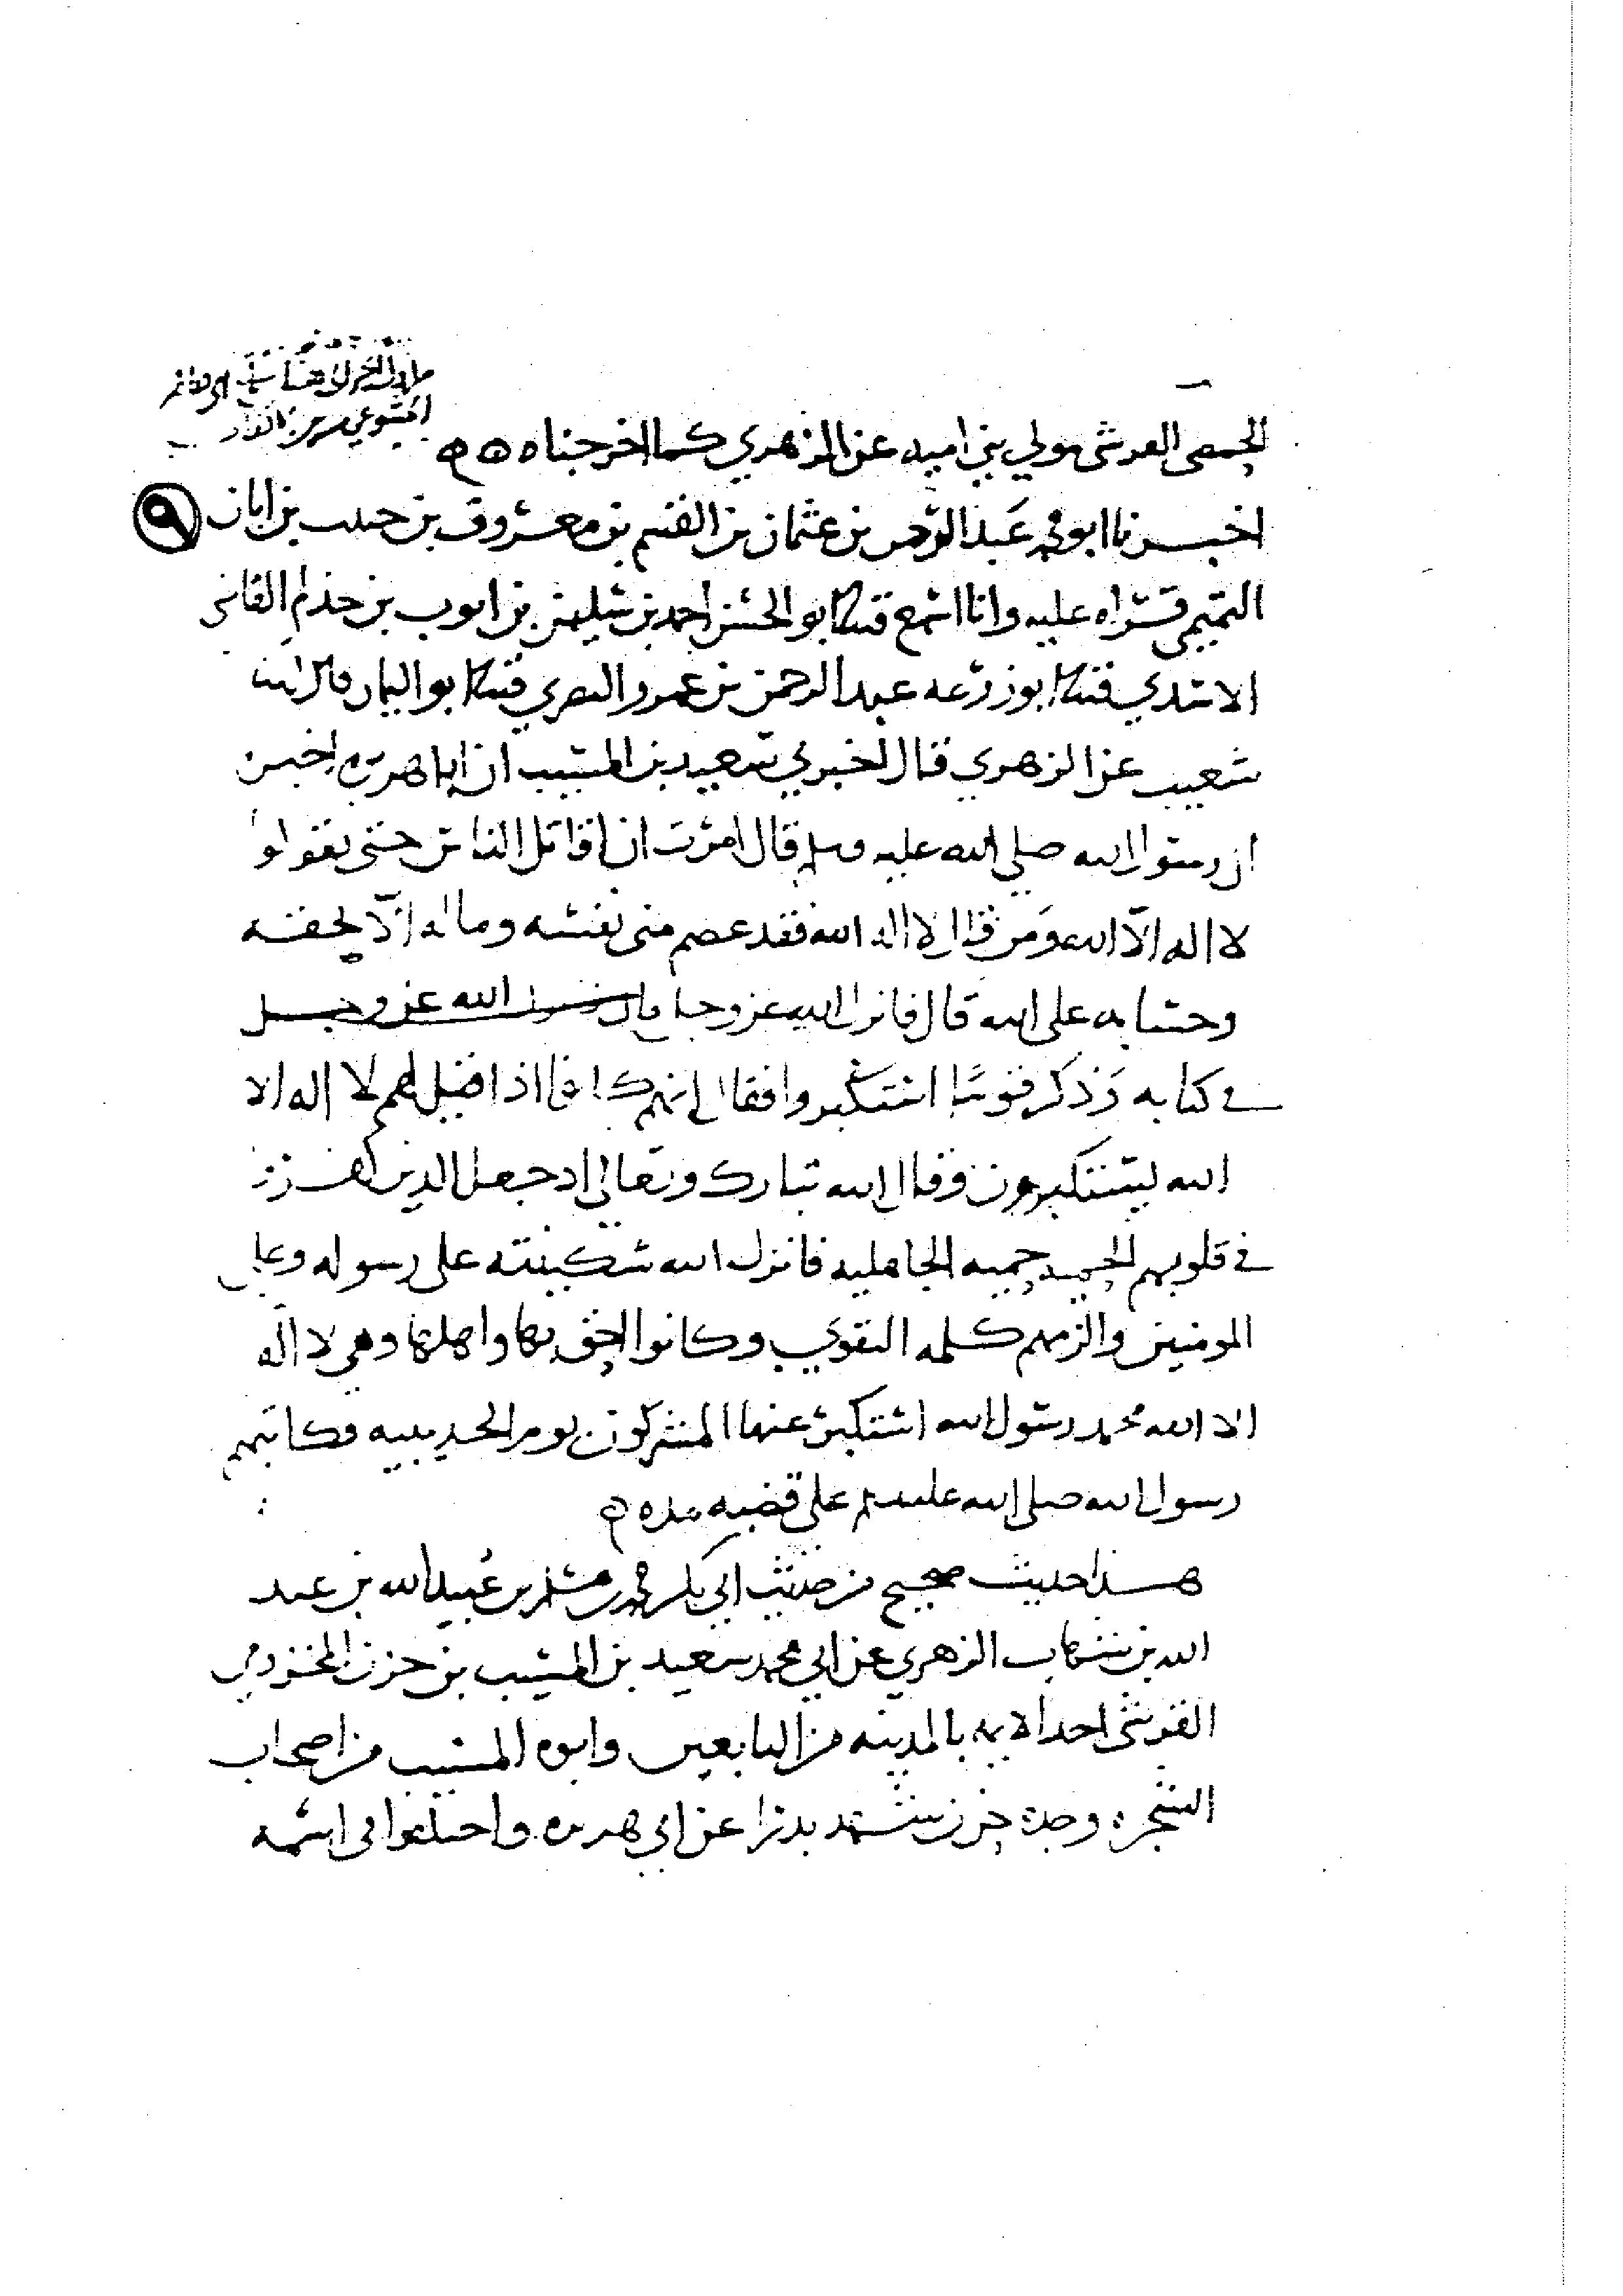 الحمصي القرشي مولي بني اميه عن الزهري كما اخرجناه
اخبرنا ابو محمد عبد الرحمن بن عثمان بن القسم بن معروف بن حبيب بن ابان
التميمي قراه عليه وانا اسمع قثنا ابو الحسن احمد بن سليمن بن ايوب بن حذلم القاضي
الاسدي قثنا ابو زرعه عبد الرحمن بن عمرو النصري قثنا ابو اليمان قال انبا
شعيب عن الزهري قال اخبرني سعيد بن المسيب ان ابا هريره اخبره
ان رسول الله صلي الله عليه وسلم قال امرت ان اقاتل الناس حتى يقولوا
لا اله الا الله ومن قال لا اله الا الله فقد عصم مني نفسه وماله الا بحقه
وحسابه على الله قال فانزل الله عز وجل فانزل الله عز وجل
في كتابه وذكر قوما استكبروا فقال انهم كانوا اذا قيل لهم لا اله الا
الله يستكبرون وقال الله تبارك وتعالى اذ جعل الذين كفروا
في قلوبهم الحميه حميه الجاهليه فانزل الله سكينته على رسوله وعلى
المومنين والزمهم كلمه التقوي وكانوا احق بها واهلها وهي لا اله
الا الله محمد رسول الله استكبر عنها المشركون يوم الحديبيه فكاتبهم
رسول الله صلى الله عليه وسلم على قضيه مده
هذا حديث صحيح من حديث ابي بكر محمد بن مسلم بن عبيد الله بن عبد
الله بن شهاب الزهري عن ابي محمد سعيد بن المسيب بن حزن المخزومي
القرشي احد الايمه بالمدينه من التابعين وابوه المسيب من اصحاب
الشجره وجده حزن شهد بدرا عن ابي هريره واختلفوا في اسمه